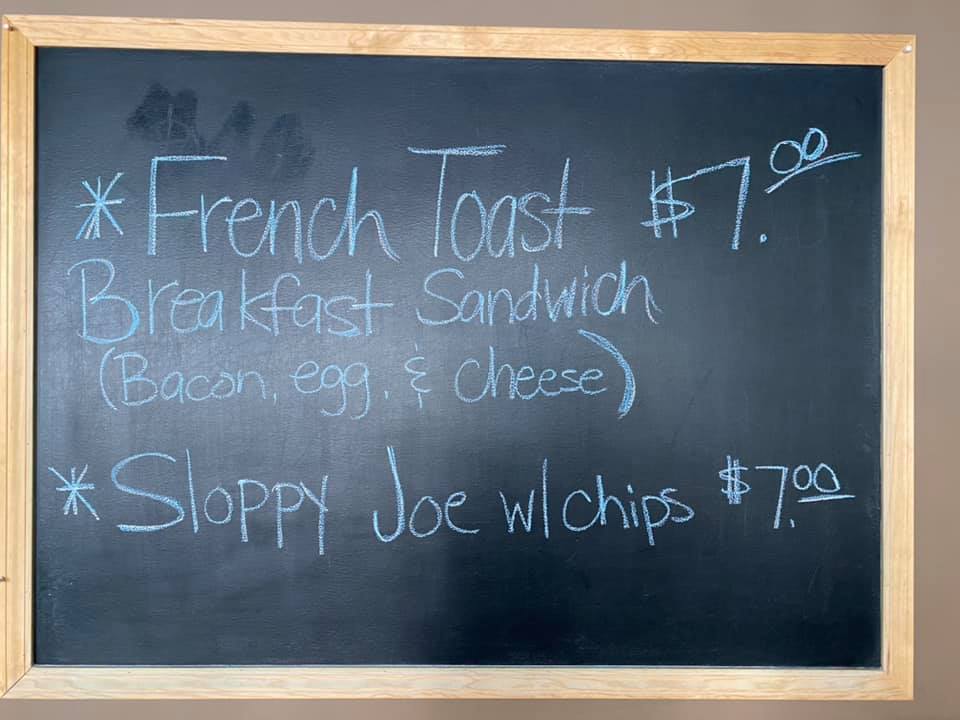 * French Toast $7.00
Breakfast Sandwich
(Bacon, egg, & cheese)
* Sloppy Joe w/chips $7.00